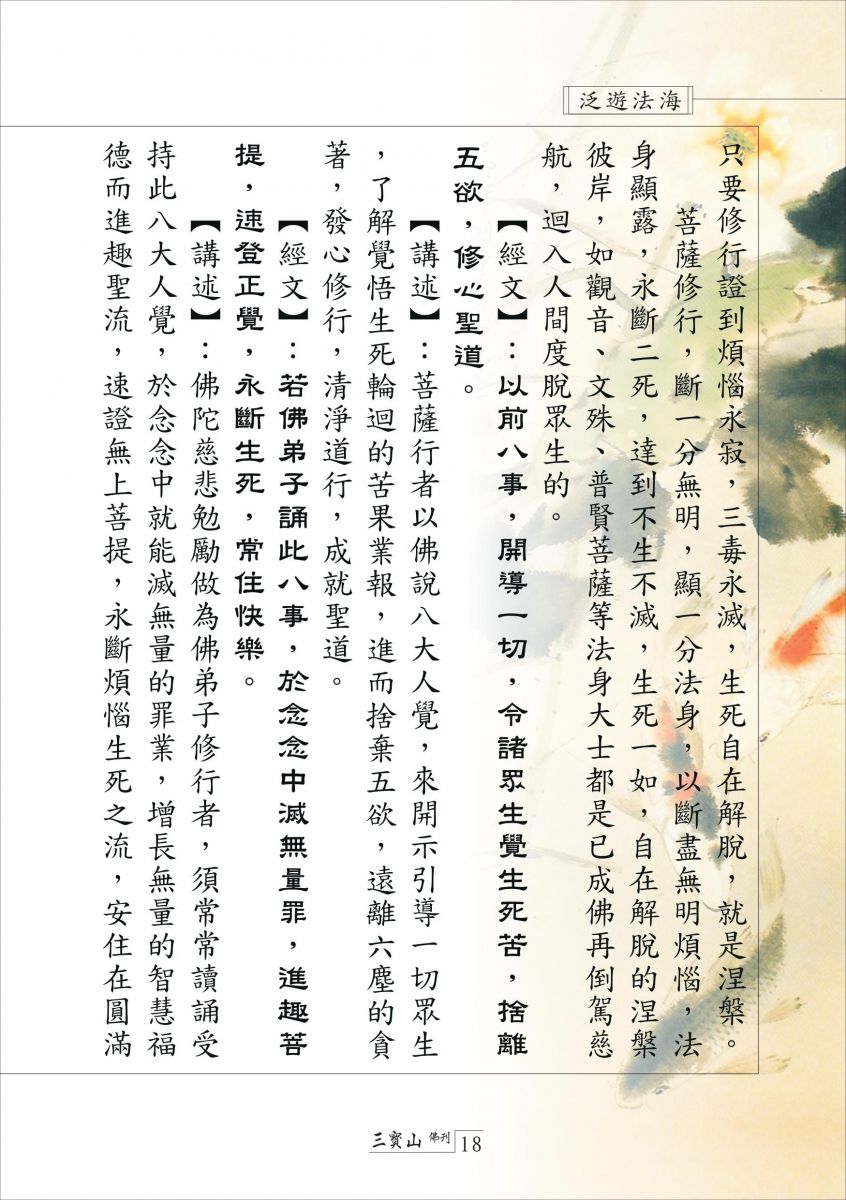 泛遊法海
只要修行證到煩惱永寂，三毒永滅，生死自在解脫，就是涅槃。
菩薩修行，斷一分無明，顯一分法身，以斷盡無明煩惱，法
身顯露，永斷二死，達到不生不滅，生死一如，自在解脫的涅槃
彼岸，如觀音、文殊、普賢菩薩等法身大士都是已成佛再倒駕慈
航，迴入人間度脫眾生的。
【經文】：以前八事，開導一切，令諸眾生覺生死苦，捨離
五欲，修心聖道。
【講述】：菩薩行者以佛說八大人覺，來開示引導一切眾生
，了解覺悟生死輪迴的苦果業報，進而捨棄五欲，遠離六塵的貪
著，發心修行，清淨道行，成就聖道。
【經文】：若佛弟子誦此八事，於念念中滅無量罪，進趣菩
提，速登正覺，永斷生死，常住快樂。
【講述】：佛陀慈悲勉勵做為佛弟子修行者，須常常讀誦受
持此八大人覺，於念念中就能滅無量的罪業，增長無量的智慧福
德而進趣聖流，速證無上菩提，永斷煩惱生死之流，安住在圓滿
三寳山 佛刊 18